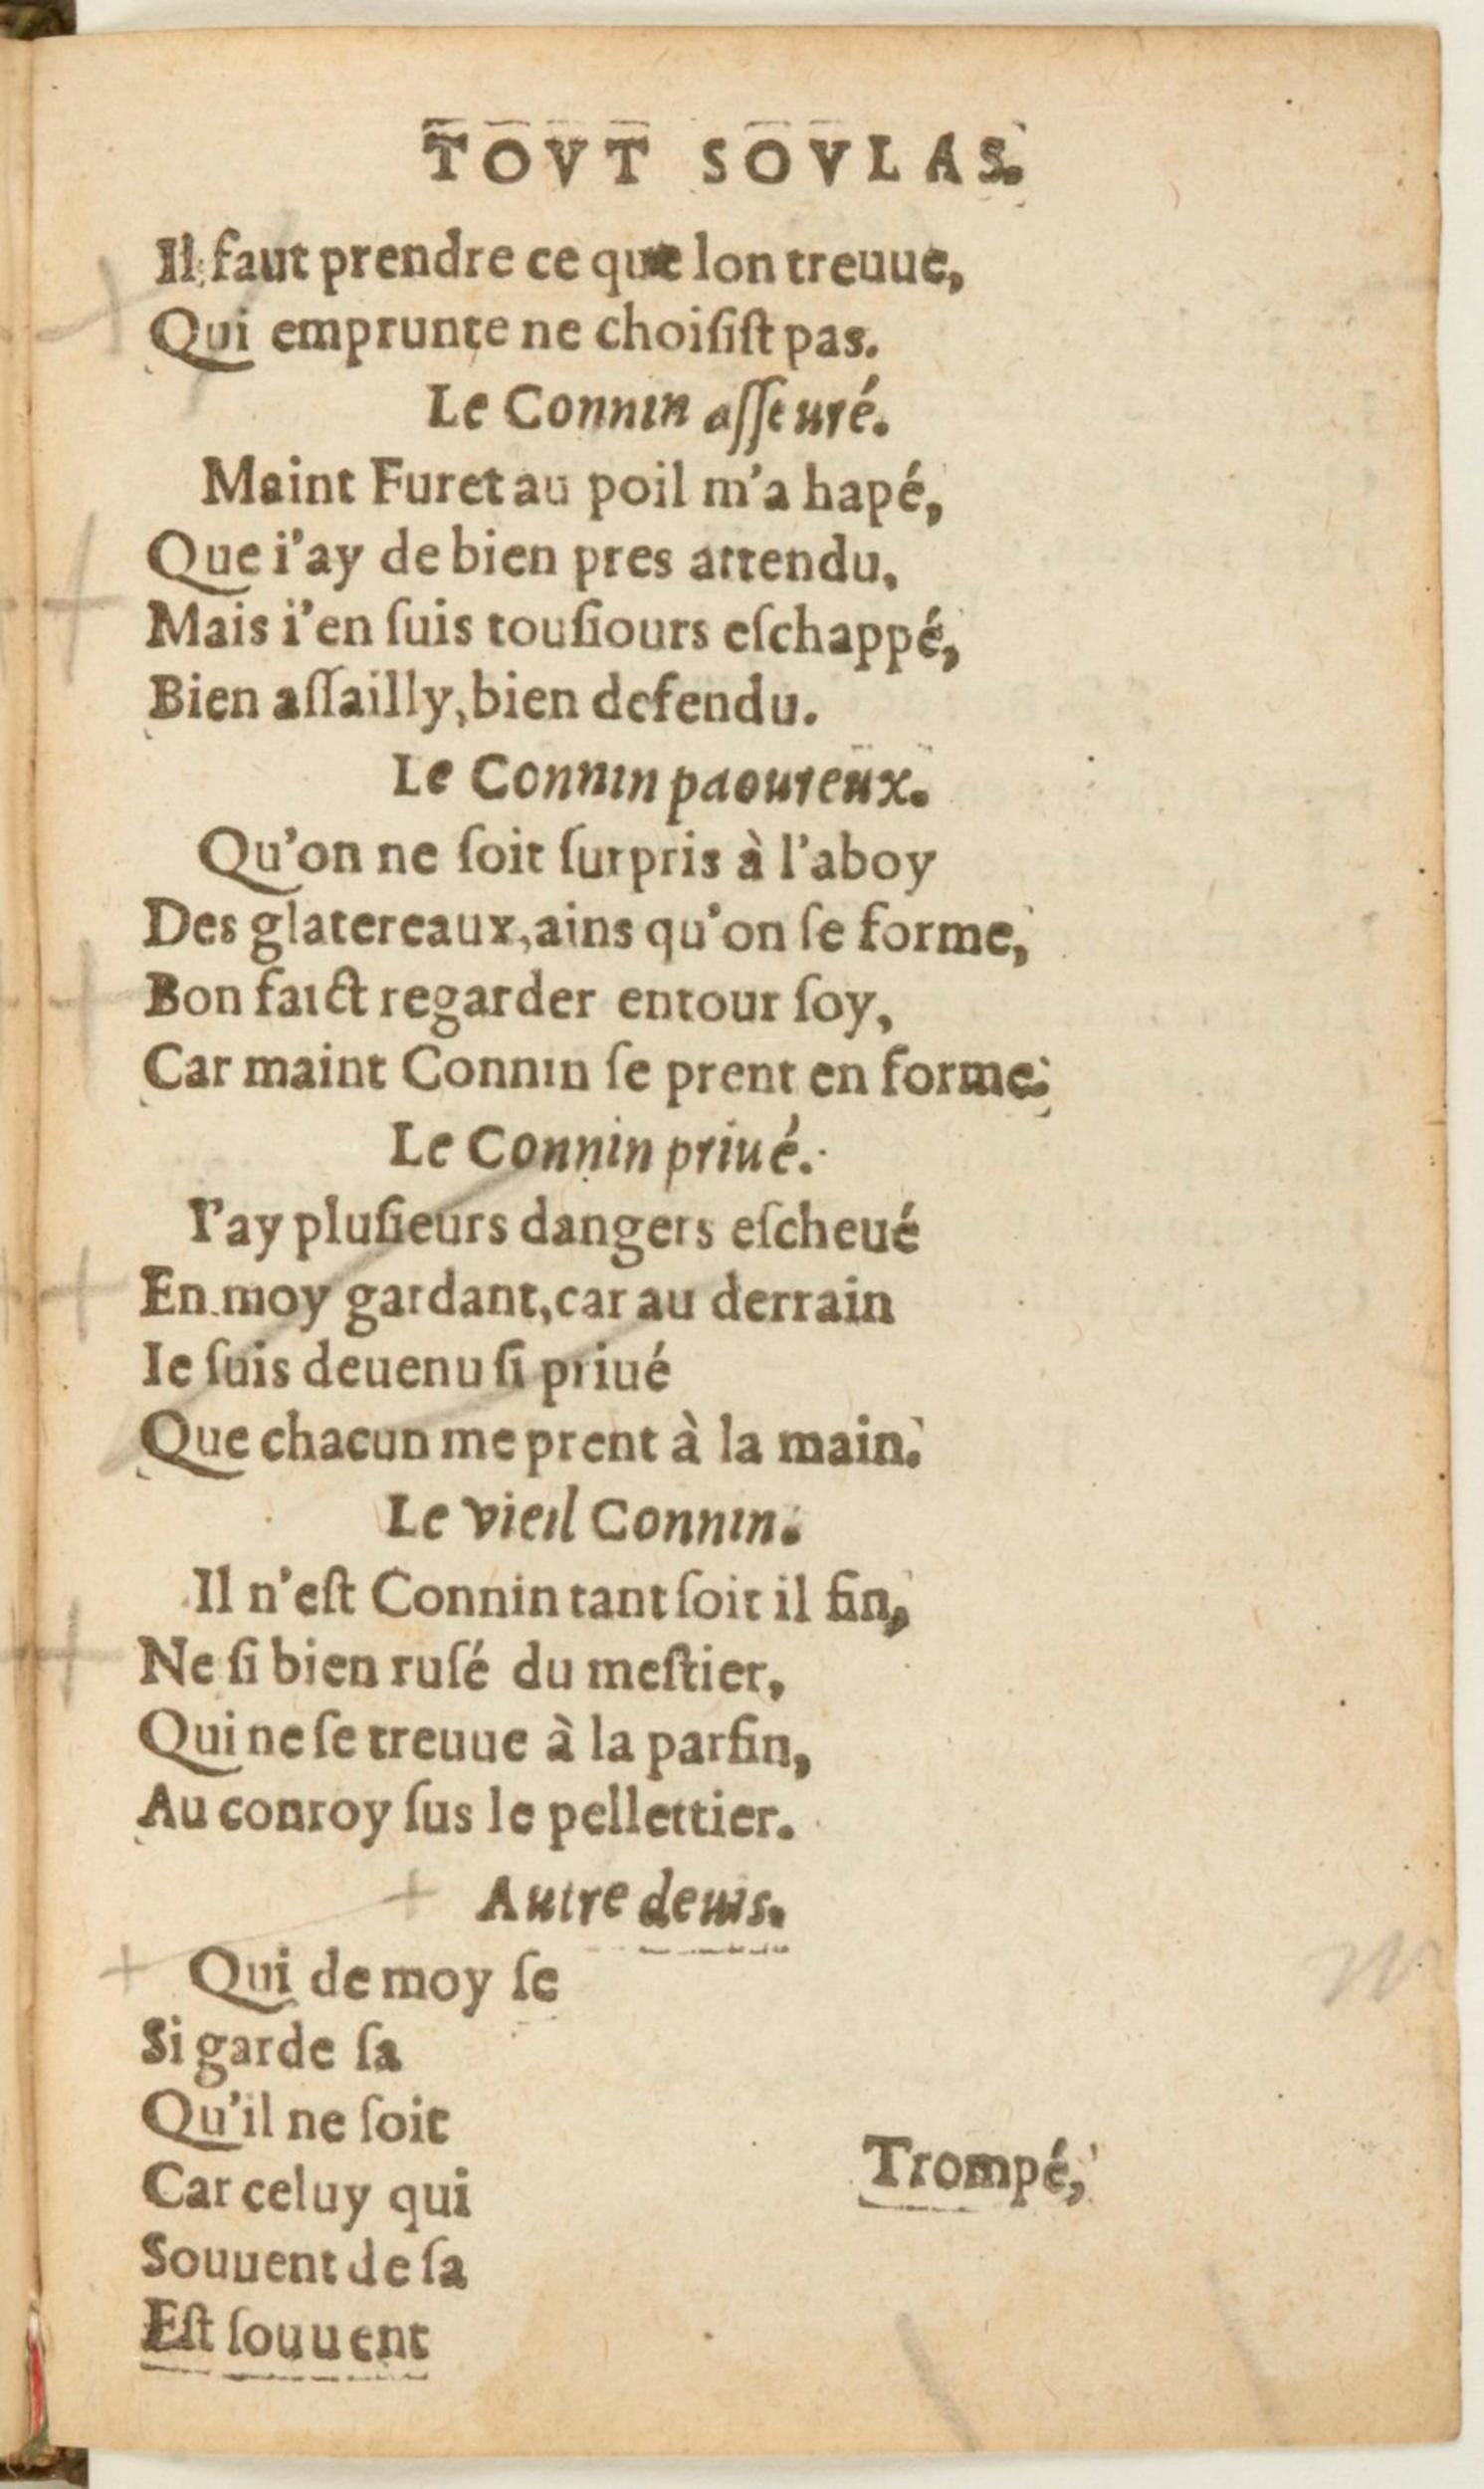 TOVT SOVLAS.
Il faut prendre ce que lon treuue,
Qui emprunte ne choiſiſt pas.
Le Connin aſſeuré.
Maint Furet au poil m'a hapé,
Que i'ay de bien pres attendu,
Mais i'en ſuis touſiours eſchappé,
Bien aſſailly, bien defendu.
Le Connin paoureux.
Qu'on ne ſoit ſurpris à l'aboy
Des glatereaux, ains qu'on ſe forme,
Bon faict regarder entour ſoy,
Car maint Connin ſe prent en forme.
Le Connin priué.
I'ay pluſieurs dangers eſcheué
En moy gardant, car au derrain
Ie ſuis deuenu ſi priué
Que chacun me prent à la main.
Le vieil Connin.
Il n'eſt Connin tant ſoit il fin,
Ne ſi bien ruſé du meſtier,
Qui ne ſe treuue à la parfin,
Au conroy ſus le pellettier.
Autre deuis.
Qui de moy ſe
Si garde ſa
Qu'il ne ſoit
Car celuy qui
Souuent de ſa
Eſt ſouuent
Trompé,